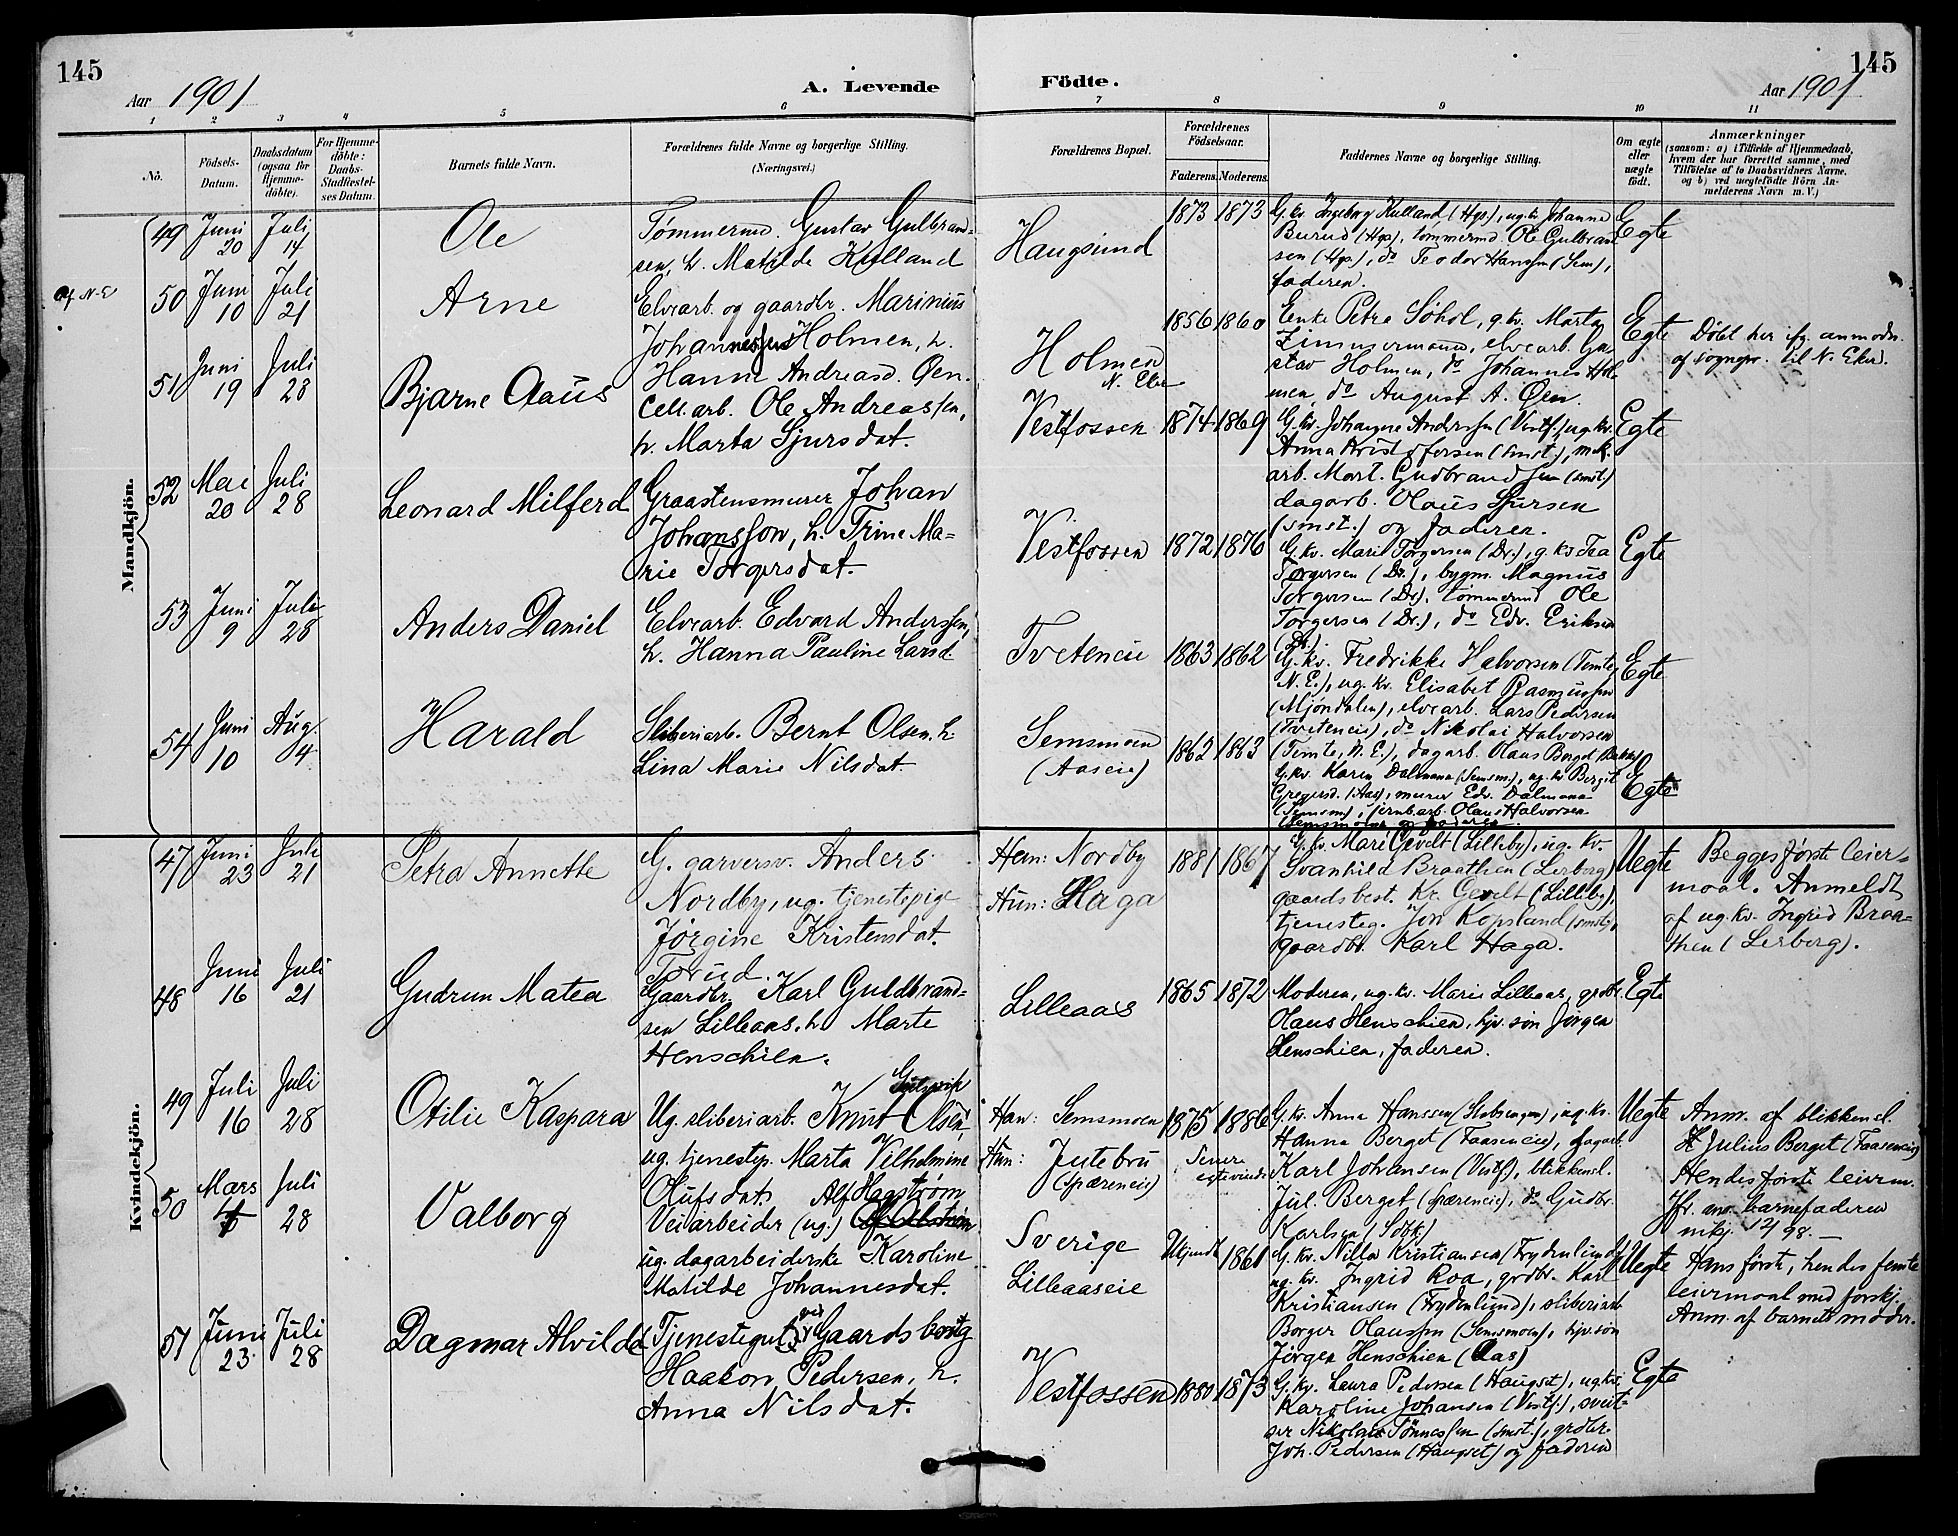 145
145
Aar 1901
A. Levende
Födte.
Aar 1901
1 2 3 4 5 6 7 8 9 10 11
No.
Födsels-Datum.
Daabsdatum (ogsaa for Hjemme-döbte).
For Hjemme-döbte: Daabs-Stadfæstel-ses Datum.
Barnets fulde Navn.
Forældrenes fulde Navne og borgerlige Stilling. (Næringsvei.)
Forældrenes Bopæl.
Forældrenes Födselsaar.
Faderens. Moderens.
Faddernes Navne og borgerlige Stilling.
Om ægte eller uægte födt.
Anmærkninger
(saasom: a) i Tilfælde af Hjemmedaab,
hvem der har forrettet samme, med
Tilföielse af to Daabsvidners Navne.
og b) ved uægtefödte Börn An-
melderens Navn m. V.)
Mandkjön.
49 Juni 20 Juli 14
Ole
Tømmermd. Gustav Gulbrand-
sen, h. Matilde Kulland
Haugsund
1873 1873
G. kv. Ingeborg Kulland (Hgs), ug. kv. Johanne
Burud (Hgs), tømmermd. Ole Gulbrand
sen (Hgs), do Teodor Hanssen (Sem),
faderen.
Egte
50 Juni 10 Juli 21
Arne
Elvearb. og gaardbr. Marinius
Johannessen Holmen, h.
Hanna Andreasd. Øen.
Holmen
N. Eker
1856 1860
Enke Petra Søhol, g. kv. Marta
Zimmermann, elvearb. Gu-
stav Holmen, do Johannes Hol
men, do August A. Øen.
Egte
Døbt her ifg. anmodn.
af sognepr. til N. Eker.
51 Juni 19 Juli 28
Bjarne Olaus
Cell. arb. Ole Andreassen,
h. Marta Sjursdat.
Vestfossen
1874 1869
G. kv. Johanne Anderssen (Vestf.), ug. kv.
Anna Kristofersen (smst.), mek.
arb. Mart. Gudbrandssen (smst)
dagarb. Olaus Sjursen
(smst.) og faderen.
Egte
52 Mai 20 Juli 28
Leonard Milferd
Graastensmurer Johan
Johansson, h. Trine Ma-
rie Torgersdat.
Vestfossen
1872 1876
G. kv. Marie Torgersen (Dr.), g. kv. Tea
Torgersen (Dr.), bygm. Magnus
Torgersen (Dr), tømmermd Ole
Torgersen (Dr.), do Edv. Eriksen
(Dr.)
Egte
53 Juni 9 Juli 28
Anders Daniel
Elvearb. Edvard Anderssen,
h. Hanna Pauline Larsd
Tveteneie
1863 1862
G. kv. Fredrikke Halvorsen (Temte,
N. E.), ug. kv. Elisabet Rasmussen
(Mjøndalen), elvearb. Lars Pedersen
(Tveteneie), do Nikolai Halvorsen
(Temte, N. E.), dagarb. Olaus Berget
Egte
54 Juni 10 Aug. 4
Harald
Sliberiarb. Bernt Olsen, h.
Lina Marie Nilsdat.
Semsmoen
(Aaseie)
1862 1863
G. kv. Karen Dalmann (Semsm.), ug. kv. Bergit
Gregersd. (Aas), murer Edv. Dalmann
(Semsm), jernbarb. Olaus Halvorsen
(Semsmoen og faderen.
Egte
Kvindekjön.
47 Juni 23 Juli 21
Petra Annette
G. garversv. Anders
Nordby, ug. tjenestepige
Jørgine Kristensdat.
Torud.
Han: Nordby
Hun: Haga
1881 1867
G. kv. Mari Gevelt (Lilleby), ug. kv.
Svanhild Braathen (Lerberg)
gaardsbest. Kr. Gevelt (Lilleby),
tjenesteg. Jon Kopland (smst),
gaardbr. Karl Haga.
Uegte
Begges første leier-
maal. Anmeldt
af ug. kv. Ingrid Braa-
then (Lerberg).
48 Juni 16 Juli 21
Gudrun Matea
Gaardbr. Karl Guldbrand-
sen Lilleaas, h. Marte
Henschien.
Lilleaas
1865 1872
Moderen, ug. kv. Marie Lilleaas, grdbr.
Olaus Henschien, hjv. søn Jørgen
Henschien, faderen.
Egte
49 Juli 16 Juli 28
Otilie Kaspara
Ug. sliberiarb. Knut Olsen,
ug. tjenestep. Marta Vilhelmine
Olufsdat.
Han: Semsmoen
Hun: Jutebru
(Spæreneie)
1875 1886
Senere
egteviede
G. kv. Anna Hanssen, ug. kv.
Hanna Berget (Faaseneie), dagarb.
Karl Johansen (Vestf.), blikkensl.
Jul. Berget (Spæreneie), do Gudbr.
Karlsen
Uegte
Anm. af blikkensl.
Julius Berget (Faaseneie)
Hendes første leierm.
Jfr. mo. barnefaderen
mkj. 12/98.
50 Mars Juli 28
Valborg
Alf Hagstrøm
Veiarbeider (ug.)
ug. dagarbeiderske Karoline
Matilde Johannesdat.
Sverige
Lilleaaseie
Ukjendt 1861
G. kv. Nilla Kristiansen (Frydenlund)
ug. kv. Ingrid Roa, grdbr. Karl
Kristiansen (Frydenlund), sliberiarb
Borger Olaussen (Semsmoen), hjv. søn
Jørgen Henschien (Aas)
Uegte
Hans første, hendes femte
leiermaal med forskj.
Anm. af barnets moder.
51 Juni 23 Juli 28
Dagmar Alvilde
Tjenestegut ved Gaardsbrug
Haakon Pedersen, h.
Anna Nilsdat.
Vestfossen
1880 1873
G. kv. Laura Pedersen (Haugset), ug. kv.
Karoline Johansen (Vestf.), sveit-
ser Nikolai Tønnessen (smst.), grdbr.
Joh. Pedersen (Haugset) og faderen
Egte